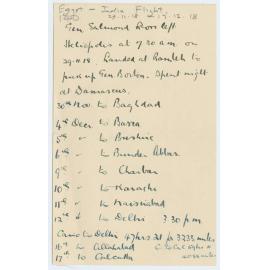 Egypt - India Flight.
29-11-18 17.12.18
Gen Salmond Ross left
Heliopolis at 7.30 a.m. on
29.11.18. Landed at Ramleh to
pick up Gen Borton. Spent night
at Damascus.
30th Nov. to Baghdad
4th Dec. to Basra
5th " to Bushire
6th " to Bunder Abbas
9th " to Charbar
10th " to Karachi
11th " to Nasirabad
12th " to Delhi 3.30 p.m.
Cairo to Delhi 47 hrs 20 for 3233 miles
16th to Allahabad
17th to Calcutta